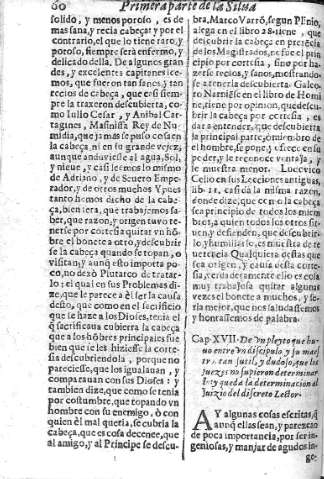 60 Primera parte de la Silua
solido, y menos poroso, es de
mas sana, y recia cabeça: y por el
contrario, el que lo tiene raro, y
poroso, siempre sera enfermo, y
delicado della. De algunos gran
des, y excelentes capitanes lee-
mos, que fueron tan sanos, y tan
recios de cabeça, que casi siem-
pre la traxeron descubierta, como
Iulio Cesar, y Anibal Car-
tagines, Masinissa Rey de Nu-
midia, que jamas se puso cosa en
la cabeça, ni en su grande vejez,
aun que anduuiesse al agua, Sol,
y nieue, y casi leemos lo mismo
de Adriano, y de Seuero Empe-
rador, y de otros muchos Y pues
tanto hemos dicho de la cabe-
ça, bien sera, que trabajemos sa-
ber, que razon, y origen tuuo te-
nerse por cortesia quitar vn hõ-
bre el bonete a otro, y descubrir
se la cabeça quando se topan, o
visitan, y aunq̃ esto importa po
co, no dexò Plutarco de tratar-
lo: el qual en sus Problemas di-
ze, que le parece a èl ser la causa
desto, que como en el sacrificio
que se haze a los Dioses, tenia el
q̃ sacrificaua cubierta la cabeça
que a los hõbres principales fue
bien que se les hiziesse la corte-
sia descubriendola, porque no
pareciesse, que los igualauan, y
comparauan con sus Dioses: y
tambien dize, que como se tenia
por costumbre, que topando vn
hombre con su enemigo, ò con
quien èl mal queria, se cubria la
cabeça, que es cosa decente, que
al amigo, y al Principe se descu-
bra. Marco Varrõ, segun Plinio,
alega en el libro 28. que
descubrir la cabeça en presencia
de los Magistrados, no fue al prin
cipio por cortesia, sino por ha-
zerse recios, y sanos, mostrando-
se a traerla descubierta. Galeo
to Narniesse en el libro de Homi
ne, tiene por opinion, que descu-
brir la cabeça por cortesia, es
dar a entender, que descubierta
la principal parte, ò miembro de
el hombre, se pone, y ofrece en su
poder, y le reconoce ventaja, y
le muestra menor. Ludovico
Celio en sus Lecciones antiguas,
lib. casi da la misma razon,
donde dize, que como la cabeça
sea principio de todos los miem
bros, a quien todos los otros sir-
uen, y defienden, que descubrir-
lo, y humillarlo, es muestra de re
uerencia Qualquiera destas que
sea origen, y causa desta corte-
sia, cuydamente ello es cosa
muy trabajosa quitar algunas
vezes el bonete a muchos, y se-
ria mejor, que nos saludassemos
y honrassemos de palabra.
Cap. XVII. De vn pleyto que hu-
uo entre vn discipulo, y su maes
tro, tan sutil, y dudoso, que los
juezes no supieron determinar
lo: y queda la determinacion al
Iuizio del discreto Lector.
AY algunas cosas escritas, q̃
aunq̃ ellas sean, y parezcan
de poca importancia, por ser in-
geniosas, y manjar de agudos in-
ge-